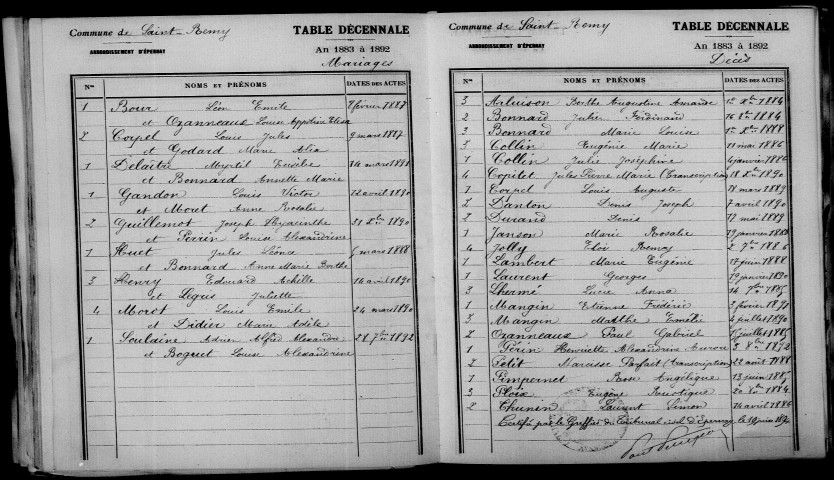 Commune de Saint-Remy
ARRONDISSEMENT D'ÉPERNAY
TABLE DÉCENNALE
An 1883 à 1892
Mariages
Nos NOMS ET PRÉNOMS DATES DES ACTES
1 Bour Léon Emile février 1887
et Ozanneaux Louise
2 Corpel Louis Jules 9 mars 1887
et Godard Marie Alix
1 Delaitre Eusèbe 14 mars 1891
et Bonnard Annette Marie
1 Gandon Louis Victor 12 avril 1890
et Moret Anne Rosalie
2 Guillemot Joseph Hyacinthe 31 Xbre 1890
et Périn Louise Alexandrine
1 Huet Jules Léonce mars 1888
et Bonnard Anne Marie Berthe
3 Henry Edouard Achille 14 avril 1890
et Legus Juliette
4 Morot Louis Emile 24 mars 1890
et Didier Marie Adèle
1 Soulaine Adrien Alfred Alexandre 28 7bre 1892
et Boquet Louise Alexandrine
Commune de Saint-Remy
ARRONDISSEMENT D'ÉPERNAY
TABLE DÉCENNALE
An 1883 à 1892
Décès
Nos NOMS ET PRÉNOMS DATES DES ACTES
3 Arluison Berthe Augustine Amanda 1er Xbre 1884
2 Bonnard Julien Ferdinand 14 Xbre 1884
3 Bonnard Marie Louise 1er Xbre 1888
3 Collin Eugénie Marie 11 mai 1886
1 Collin Julie Joséphine 4 janvier 1886
4 Copitet Jules Pierre Marie (transcription) 18 Xbre 1890
1 Corpel Louis Auguste 18 mars 1889
2 Danton Denis Joseph 7 avril 1890
2 Durand Denis 17 mai 1889
1 Janson Marie Rosalie 19 janvier
4 Jolly Eloi Remy 2 7bre 1886
1 Lambert Marie Eugénie 17 juin 1888
1 Laurent Georges 19 janvier 1890
3 Lhermé Lucie Anna 14 7bre 1885
1 Mangin Etienne Frédéric 3 février 1891
3 Mangin Marthe Emélie 4 juillet 1890
2 Ozanneaux Paul Gabriel juillet 1885
1 Périn Henriette Alexandrine Aurore 3 Xbre 1892
2 Petit Narcisse Parfait (transcription) 22 août 1888
1 Pimpernet Rose Angélique 13 juin 1885
3 Ploix Eugène Rustique 20 Xbre 1884
2 Thunin Laurent Simon 14 avril 1886
Certifié par le Greffier du Tribunal civil d'Epernay le 10 juin